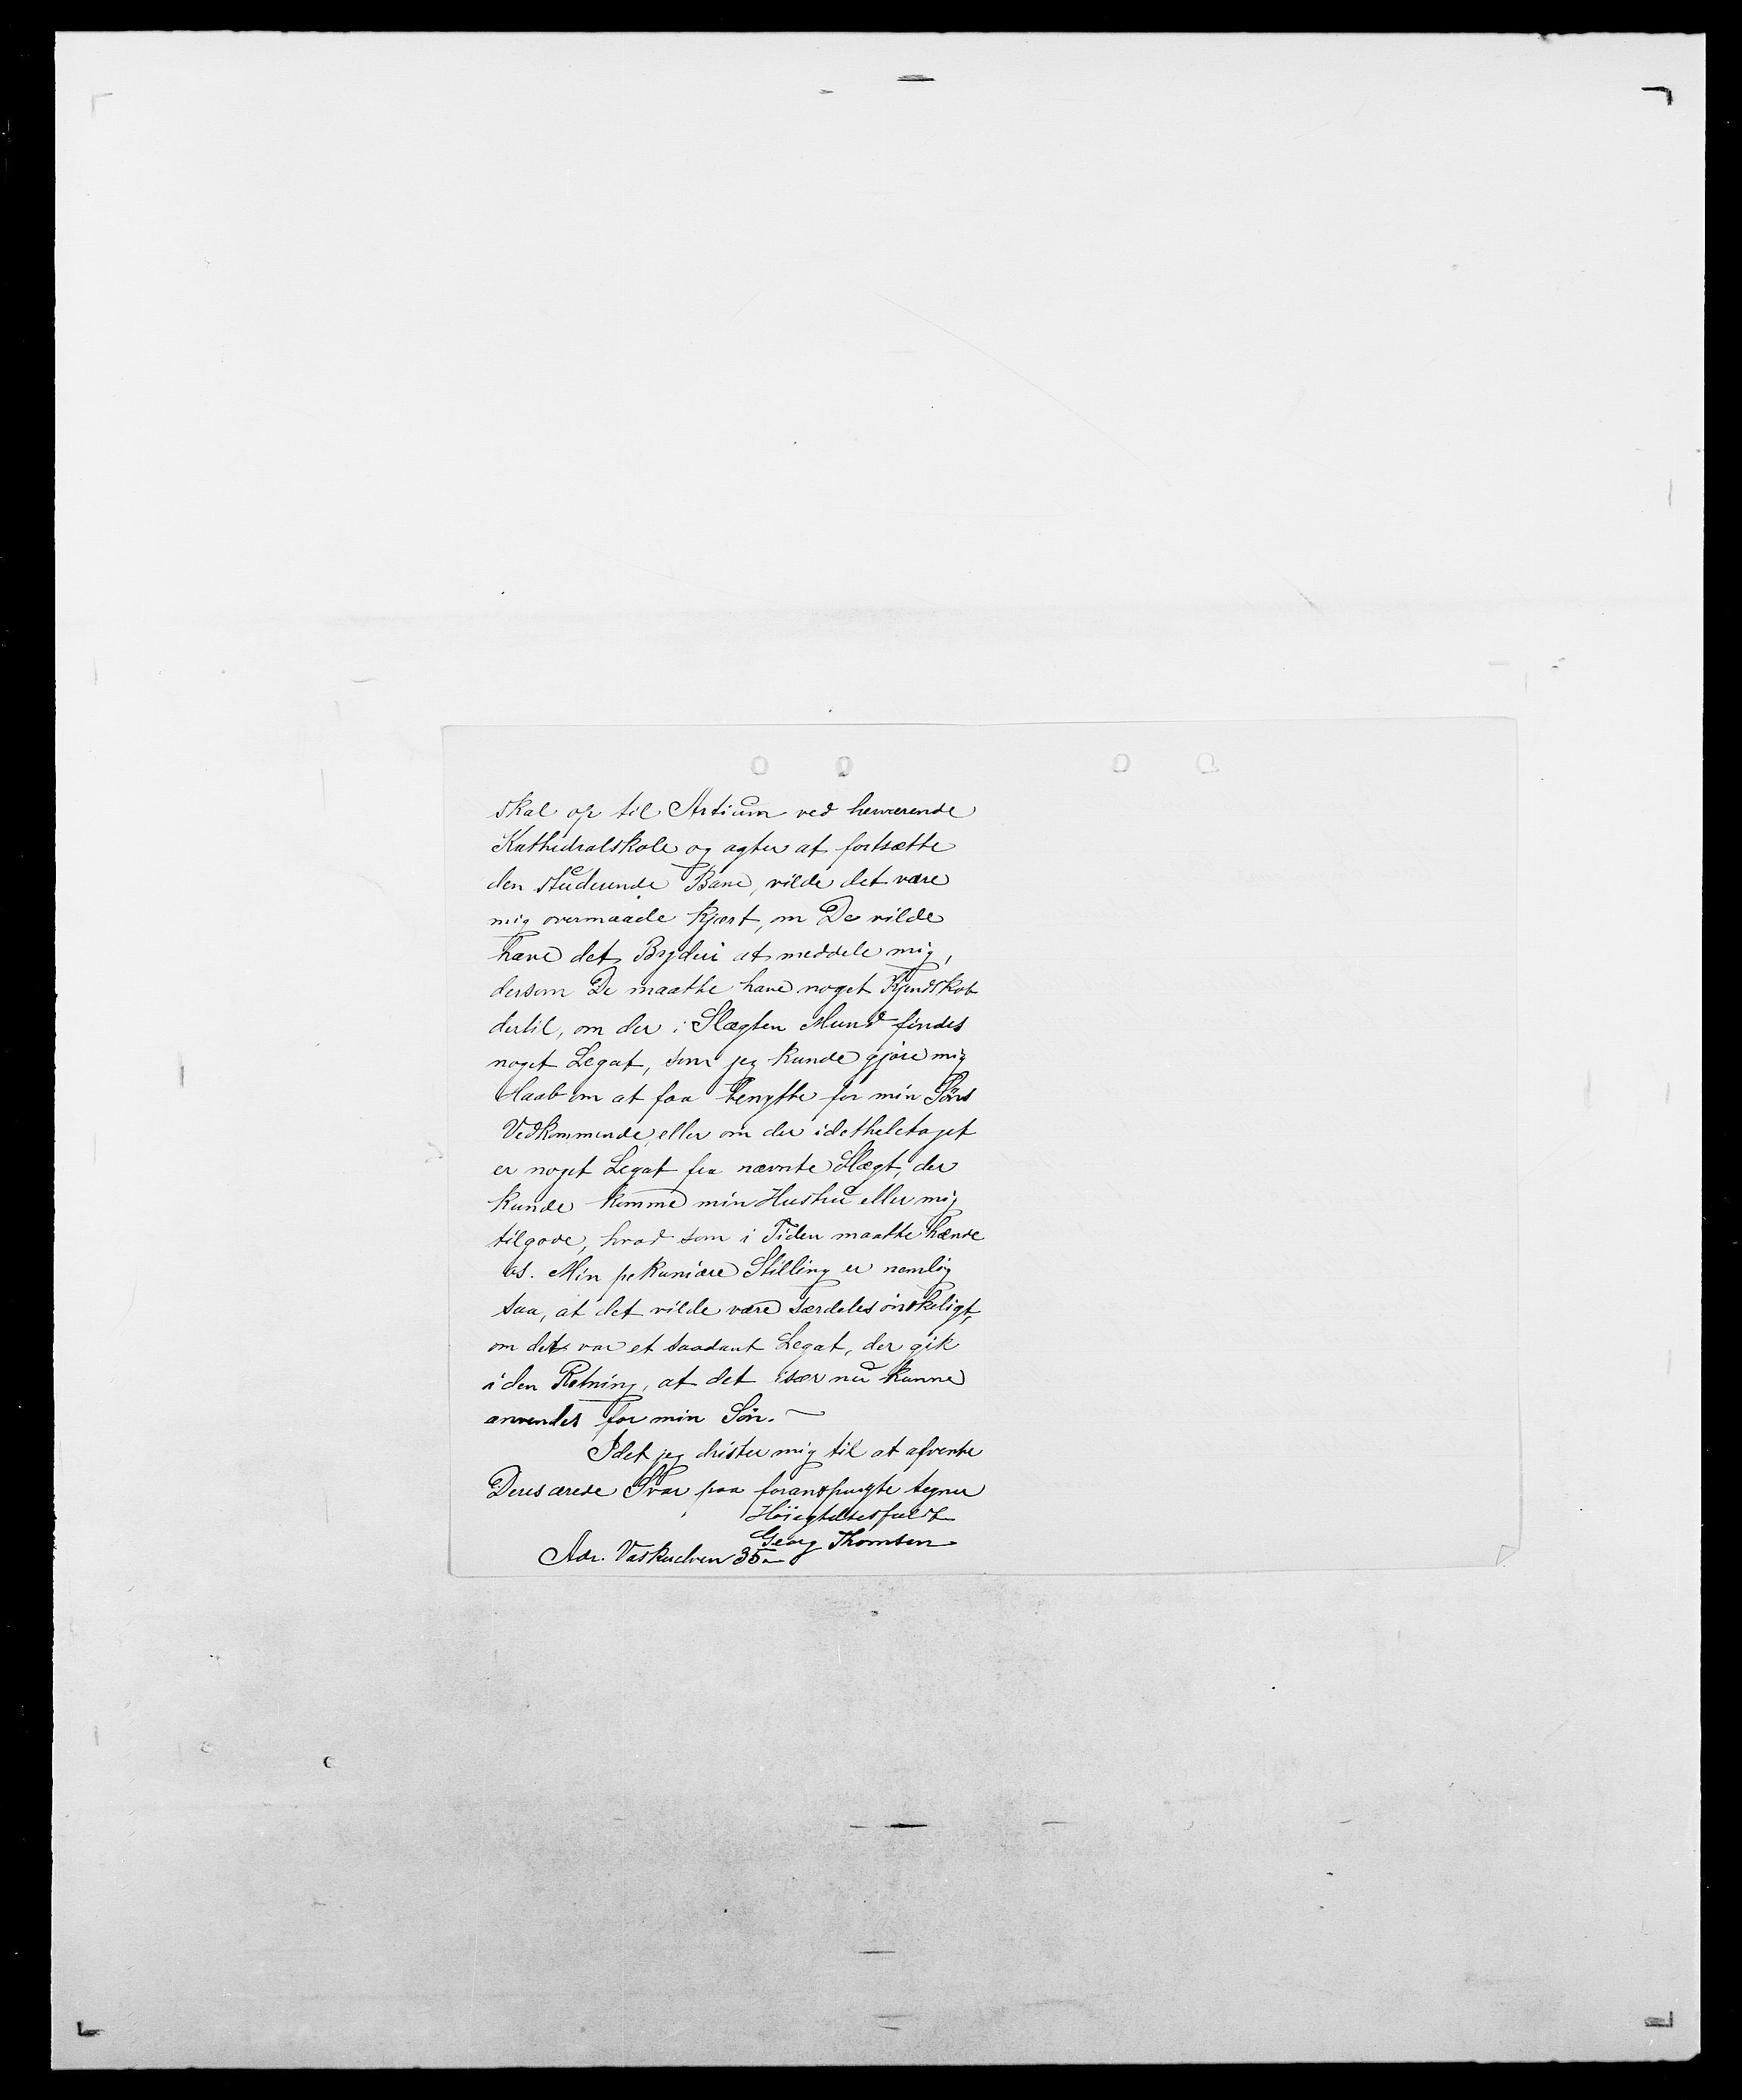 skal op til Artium ved herværende
Kathedralskole og agter at fortsætte
den studerende Bane, vilde det være
mig overmaade kjært, om De vilde
have det Bryderi at meddele mig,
dersom De maatte have noget Kjendskab
dertil, om der i Slægten Mund findes
noget Legat, som jeg kunde gjøre mig
Haab om at faa benytte for min Søns
Vedkommende, eller om der idetheletaget
er noget Legat fra nævnte Slægt, der
kunde komme min Hustru eller mig
tilgode, hvad som i Tiden maatte hænde
os. Min pekuniære Stilling er nemlig
saa, at det vilde være særdeles ønskeligt,
om det var et saadant Legat, der gik
i den Retning, at det især nu kunne
anvendes for min Søn. ~
Idet jeg drister mig til at afvente
Deres ærede Svar paa foranspurgte tegner
Høiagtelsesfuldt
Georg Thomsen
Adr. Vaskuelven 35